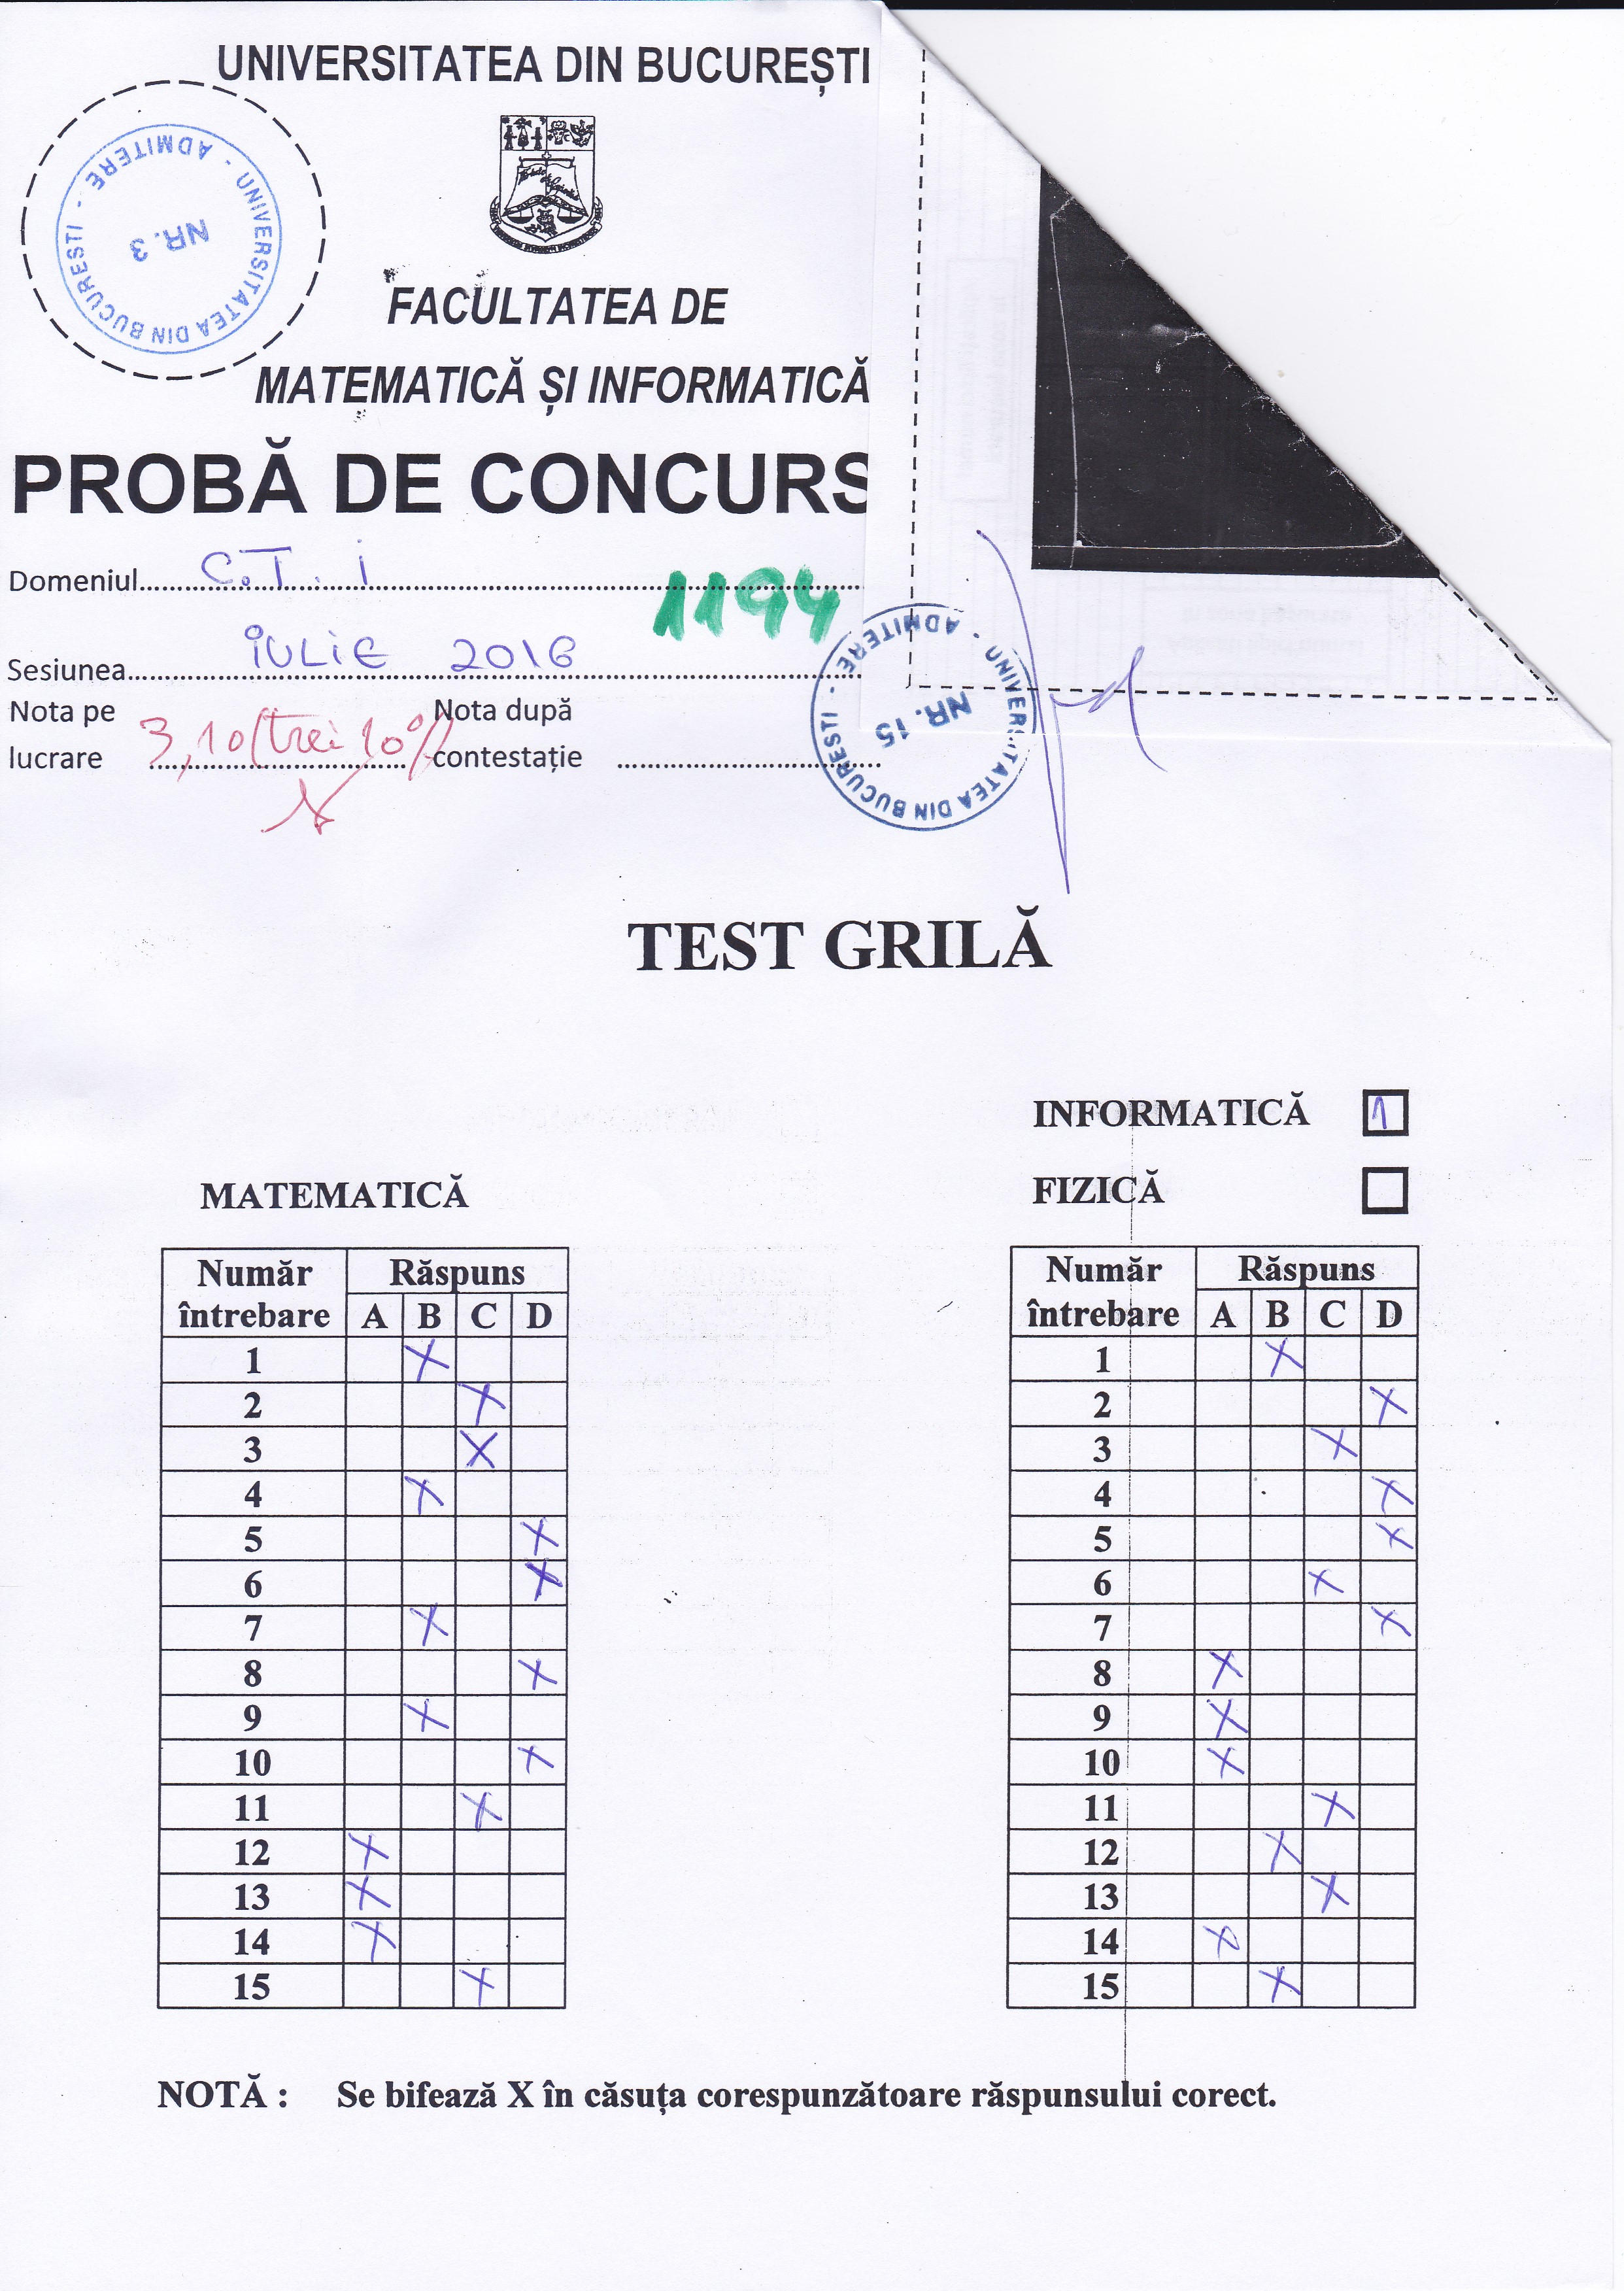 UNIVERSITATEA DIN BUCUREȘTI
UNIVERSITATEA DIN BUCURESTI - ADMITERE -
NR. 3
FACULTATEA DE
MATEMATICĂ ȘI INFORMATICĂ
PROBĂ DE CONCURS
Domeniul C.T.i
1194
Sesiunea iULiE 2016
Nota pe lucrare 3,10 (trei 10%)
Nota după contestație
UNIVERSITATEA DIN BUCURESTI - ADMITERE -
NR. 15
TEST GRILĂ
INFORMATICĂ 1
MATEMATICĂ
FIZICĂ
Număr întrebare Răspuns
A B C D
1 X
2 X
3 X
4 X
5 X
6 X
7 X
8 X
9 X
10 X
11 X
12 X
13 X
14 X
15 X
Număr întrebare Răspuns
A B C D
1 X
2 X
3 X
4 X
5 X
6 X
7 X
8 X
9 X
10 X
11 X
12 X
13 X
14 X
15 X
NOTĂ : Se bifează X în căsuța corespunzătoare răspunsului corect.